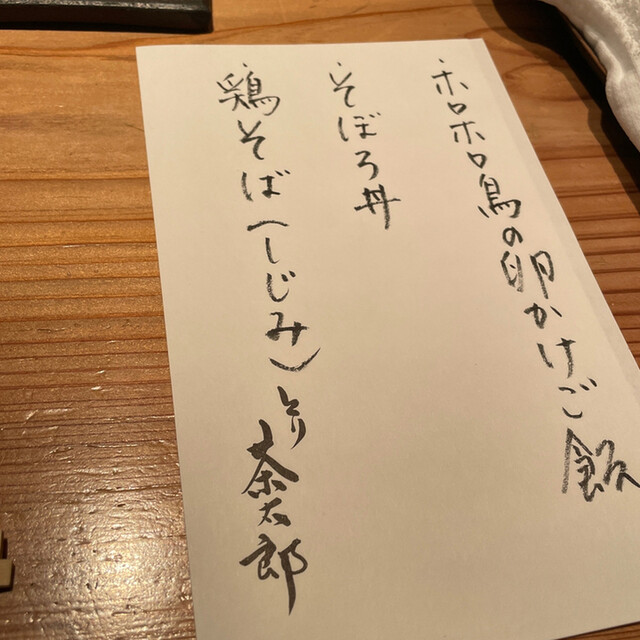 ・ホロホロ鳥の卵かけご飯
・そぼろ丼
・鶏そば(しじみ)
とり茶太郎